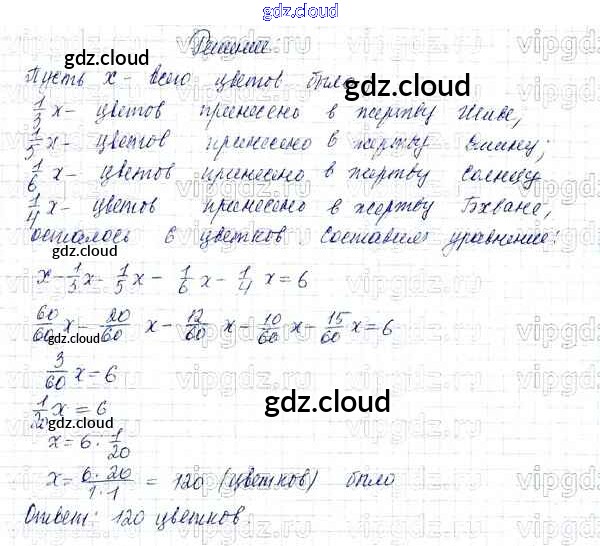 gdz.cloud
Решение:
Пусть x - всего цветов было
1/3 x - цветов принесено в жертву Шиве,
1/5 x - цветов принесено в жертву Вишну;
1/6 x - цветов принесено в жертву Солнцу
1/4 x - цветов принесено в жертву Бхване,
осталось 6 цветков. Составим уравнение:
x - 1/3 x - 1/5 x - 1/6 x - 1/4 x = 6
60/60 x - 20/60 x - 12/60 x - 10/60 x - 15/60 x = 6
3/60 x - 6
1/20 x = 6
x = 6 · 1/20
x = 6 · 20 / 1 · 1 = 120 (цветков) было
Ответ: 120 цветков.